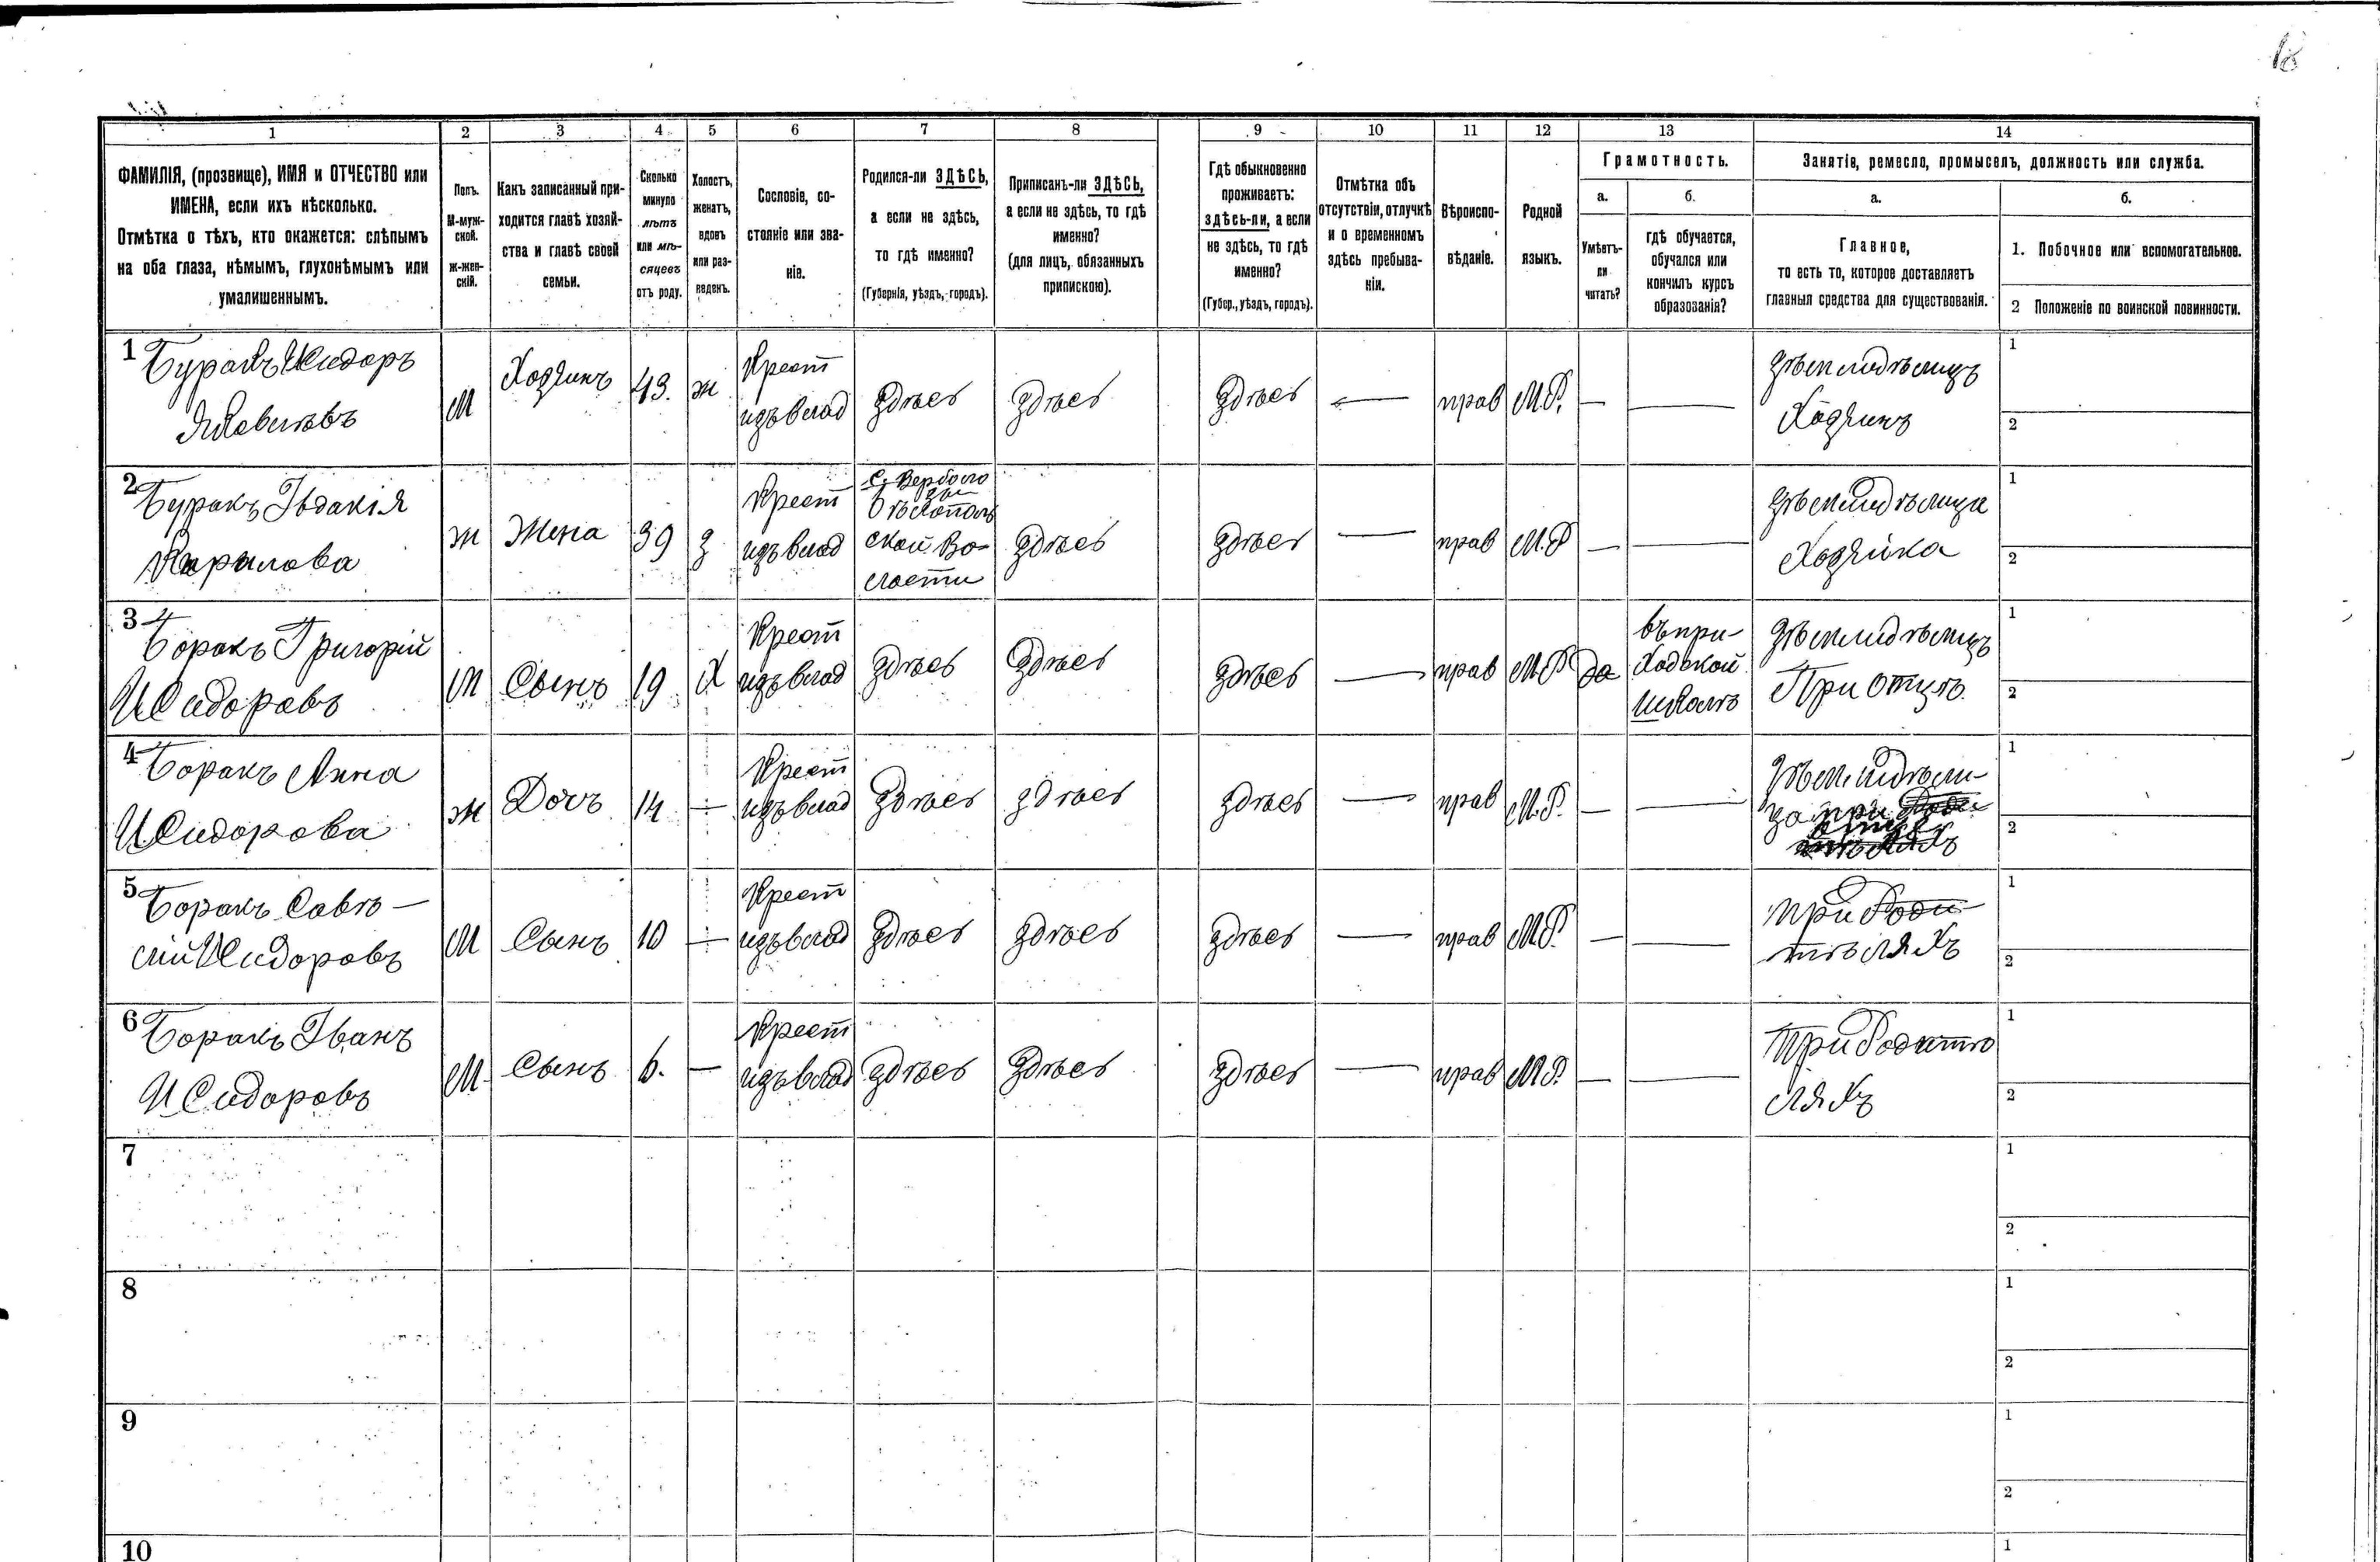 18
1 2 3 4 5 6 7 8 9 10 11 12 13 14
ФАМИЛІЯ, (прозвище), ИМЯ и ОТЧЕСТВО или
ИМЕНА, если ихъ нѣсколько.
Отмѣтка о тѣхъ, кто окажется: слѣпымъ
на оба глаза, нѣмымъ, глухонѣмымъ или
умалишеннымъ.
Полъ.
М-муж-
ской.
Ж-жен-
скій.
Какъ записанный при-
ходится главѣ хозяй-
ства и главѣ своей
семьи.
Сколько
минуло
лѣтъ
или мѣ-
сяцевъ
отъ роду.
Холостъ,
женатъ,
вдовъ
или раз-
веденъ.
Сословіе, со-
стояніе или зва-
ніе.
Родился-ли ЗДѢСЬ,
а если не здѣсь,
то гдѣ именно?
(Губернія, уѣздъ, городъ).
Приписанъ-ли ЗДѢСЬ,
а если не здѣсь, то гдѣ
именно?
(для лицъ, обязанныхъ
припискою).
Гдѣ обыкновенно
проживаетъ:
здѣсь-ли, а если
не здѣсь, то гдѣ
именно?
(Губер., уѣздъ, городъ).
Отмѣтка объ
отсутствіи, отлучкѣ
и о временномъ
здѣсь пребыва-
ніи.
Вѣроиспо-
вѣданіе.
Родной
языкъ.
Грамотность.
а.
Умѣетъ-
ли
читать?
б.
гдѣ обучается,
обучался или
кончилъ курсъ
образованія?
Занятіе, ремесло, промыселъ, должность или служба.
а.
Главное,
то есть то, которое доставляетъ
главныя средства для существованія.
б.
1. Побочное или вспомогательное.
2 Положеніе по воинской повинности.
1
Буракъ Исидоръ
Яковлѣвъ
М
Хозяинъ
43.
ж
Крест
изъ влад
здѣсь
здѣсь
здѣсь
—
прав
М.Р.
—
—
зѣмлидѣлицъ
Хозяинъ
1
2
2
Буракъ Івдакія
Кирилова
ж
Жена
39
з
Крест
изъ влад
с. Вербово
ской Во-
лости
здѣсь
здѣсь
—
прав
М.Р
—
—
зѣмлидѣлица
Хозяйка
1
2
3
Боракъ Григорій
Исидоровъ
М
Сынъ
19
Х
Крест
изъ влад
здѣсь
здѣсь
здѣсь
—
прав
М.Р
да
въ при-
ходской
школѣ
зѣмлидѣлицъ
При отцѣ.
1
2
4
Боракъ Анна
Исидорова
ж
Дочъ
14
—
Крест
изъ влад
здѣсь
здѣсь
здѣсь
—
прав
М.Р.
—
—
зѣмлидѣли-
ца при
1
2
5
Боракъ Савѣ-
лій Исидоровъ
М
Сынъ
10
—
Крест
изъ влад
здѣсь
здѣсь
здѣсь
—
прав
М.Р.
—
—
При Роди-
тѣляхъ
1
2
6
Боракъ Іванъ
Исидоровъ
М
Сынъ
6.
—
Крест
изъ влад
здѣсь
здѣсь
здѣсь
—
прав
М.Р.
—
—
При Родитѣ
ляхъ
1
2
7
1
2
8
1
2
9
1
2
10
1